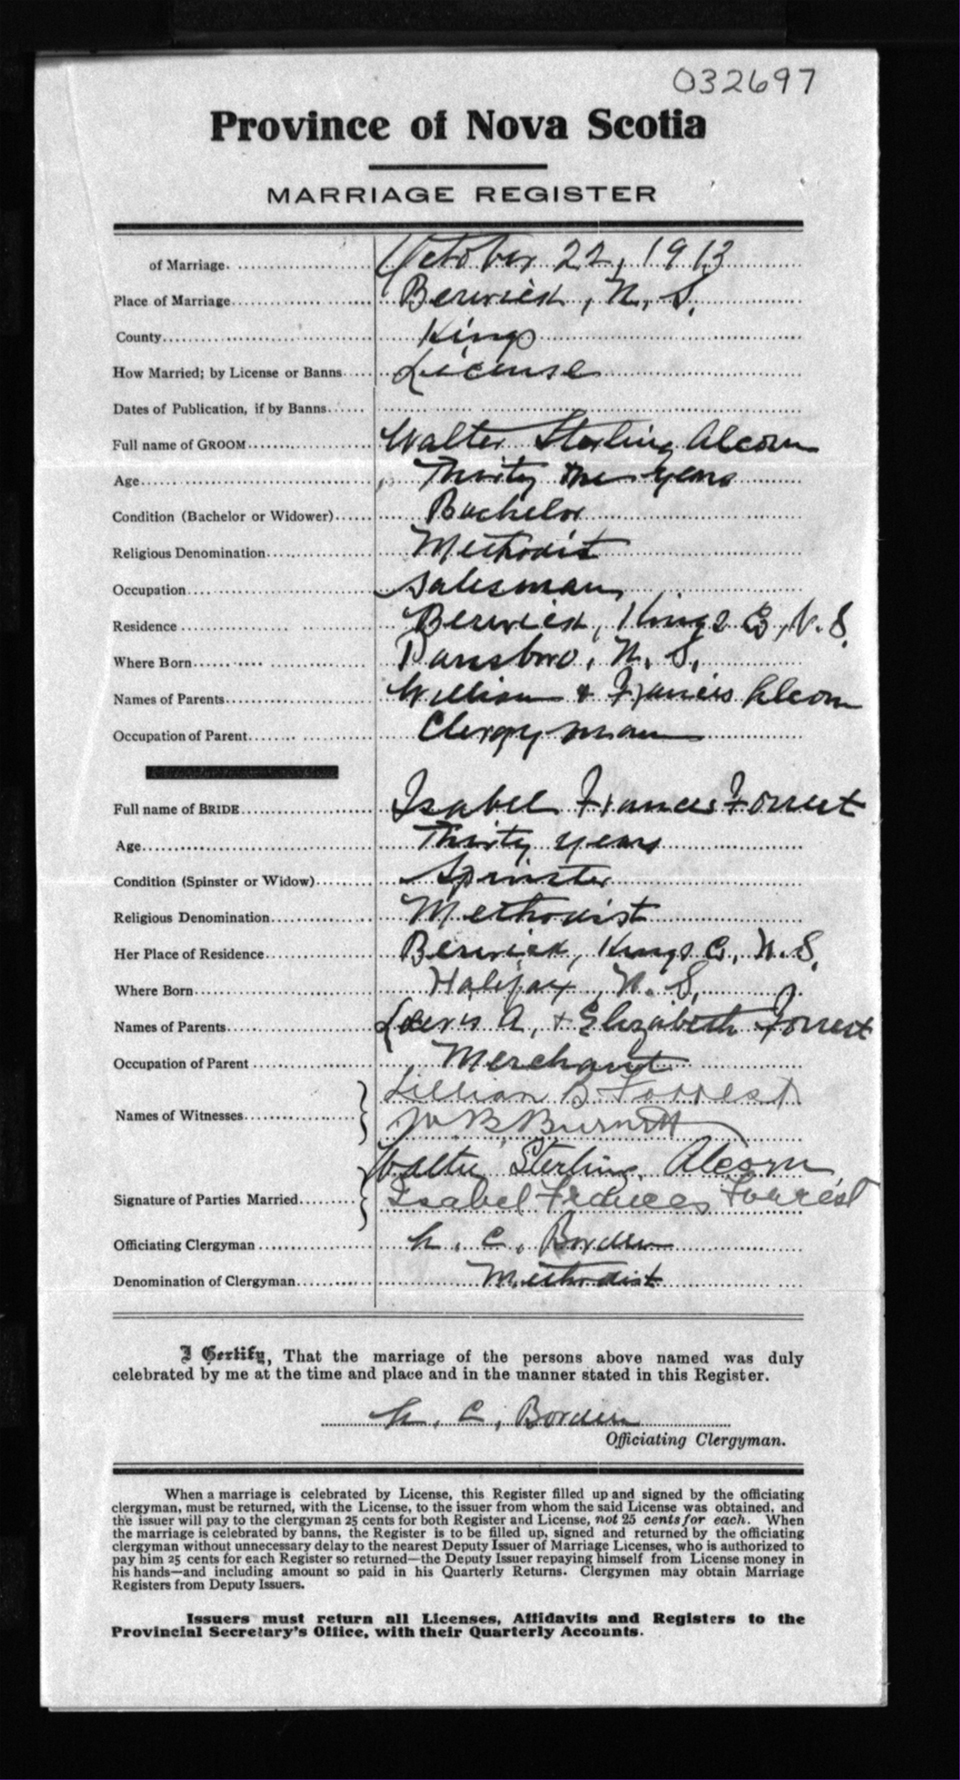 032697
Province of Nova Scotia
MARRIAGE REGISTER
of Marriage. October 22, 1913
Place of Marriage Berwick, N. S.
County Kings
How Married; by License or Banns License
Dates of Publication, if by Banns
Full name of GROOM Walter Sterling Alcorn
Age Thirty one years
Condition (Bachelor or Widower) Bachelor
Religious Denomination Methodist
Occupation Salesman
Residence Berwick, Kings Co, N. S.
Where Born Parrsboro, N. S.
Names of Parents William & Francis Alcorn
Occupation of Parent Clergyman
Full name of BRIDE Isabel Frances Forrest
Age Thirty years
Condition (Spinster or Widow) Spinster
Religious Denomination Methodist
Her Place of Residence Berwick, Kings Co, N. S.
Where Born Halifax, N. S.
Names of Parents Lewis A. & Elizabeth Forrest
Occupation of Parent Merchant
Names of Witnesses Lillian B. Forrest
W B Burnett
Walter Sterling Alcorn
Signature of Parties Married Isabel Frances Forrest
Officiating Clergyman h. C. Borden
Denomination of Clergyman Methodist
I Certify, That the marriage of the persons above named was duly
celebrated by me at the time and place and in the manner stated in this Register.
h. C. Borden
Officiating Clergyman.
When a marriage is celebrated by License, this Register filled up and signed by the officiating
clergyman, must be returned, with the License, to the issuer from whom the said License was obtained, and
the issuer will pay to the clergyman 25 cents for both Register and License, not 25 cents for each. When
the marriage is celebrated by banns, the Register is to be filled up, signed and returned by the officiating
clergyman without unnecessary delay to the nearest Deputy Issuer of Marriage Licenses, who is authorized to
pay him 25 cents for each Register so returned—the Deputy Issuer repaying himself from License money in
his hands—and including amount so paid in his Quarterly Returns. Clergymen may obtain Marriage
Registers from Deputy Issuers.
Issuers must return all Licenses, Affidavits and Registers to the
Provincial Secretary's Office, with their Quarterly Accounts.